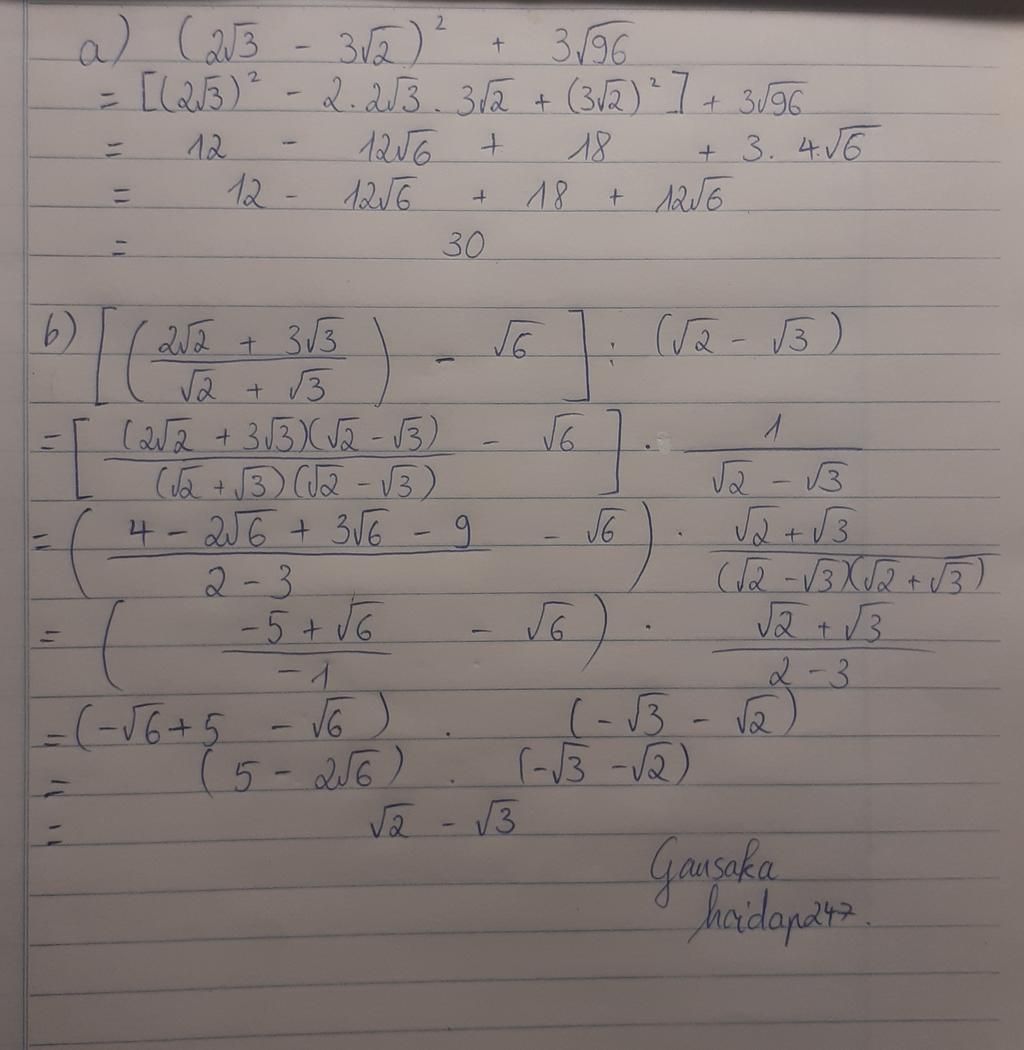 a) (2√3 - 3√2)² + 3√96
= [(2√3)² - 2.2√3.3√2 + (3√2)²] + 3√96
= 12 - 12√6 + 18 + 3.4.√6
= 12 - 12√6 + 18 + 12√6
= 30
b) [((2√2 + 3√3)/(√2 + √3)) - √6] : (√2 - √3)
= [(2√2 + 3√3)(√2 - √3)/(√2 + √3)(√2 - √3) - √6] . 1/(√2 - √3)
= ((4 - 2√6 + 3√6 - 9)/(2 - 3) - √6) . (√2 + √3)/(√2 - √3)(√2 + √3)
= ((-5 + √6)/(-1) - √6) . (√2 + √3)/(2 - 3)
= (-√6 + 5 - √6) . (-√3 - √2)
= (5 - 2√6) . (-√3 - √2)
= √2 - √3
Gausaka
hoidap247.